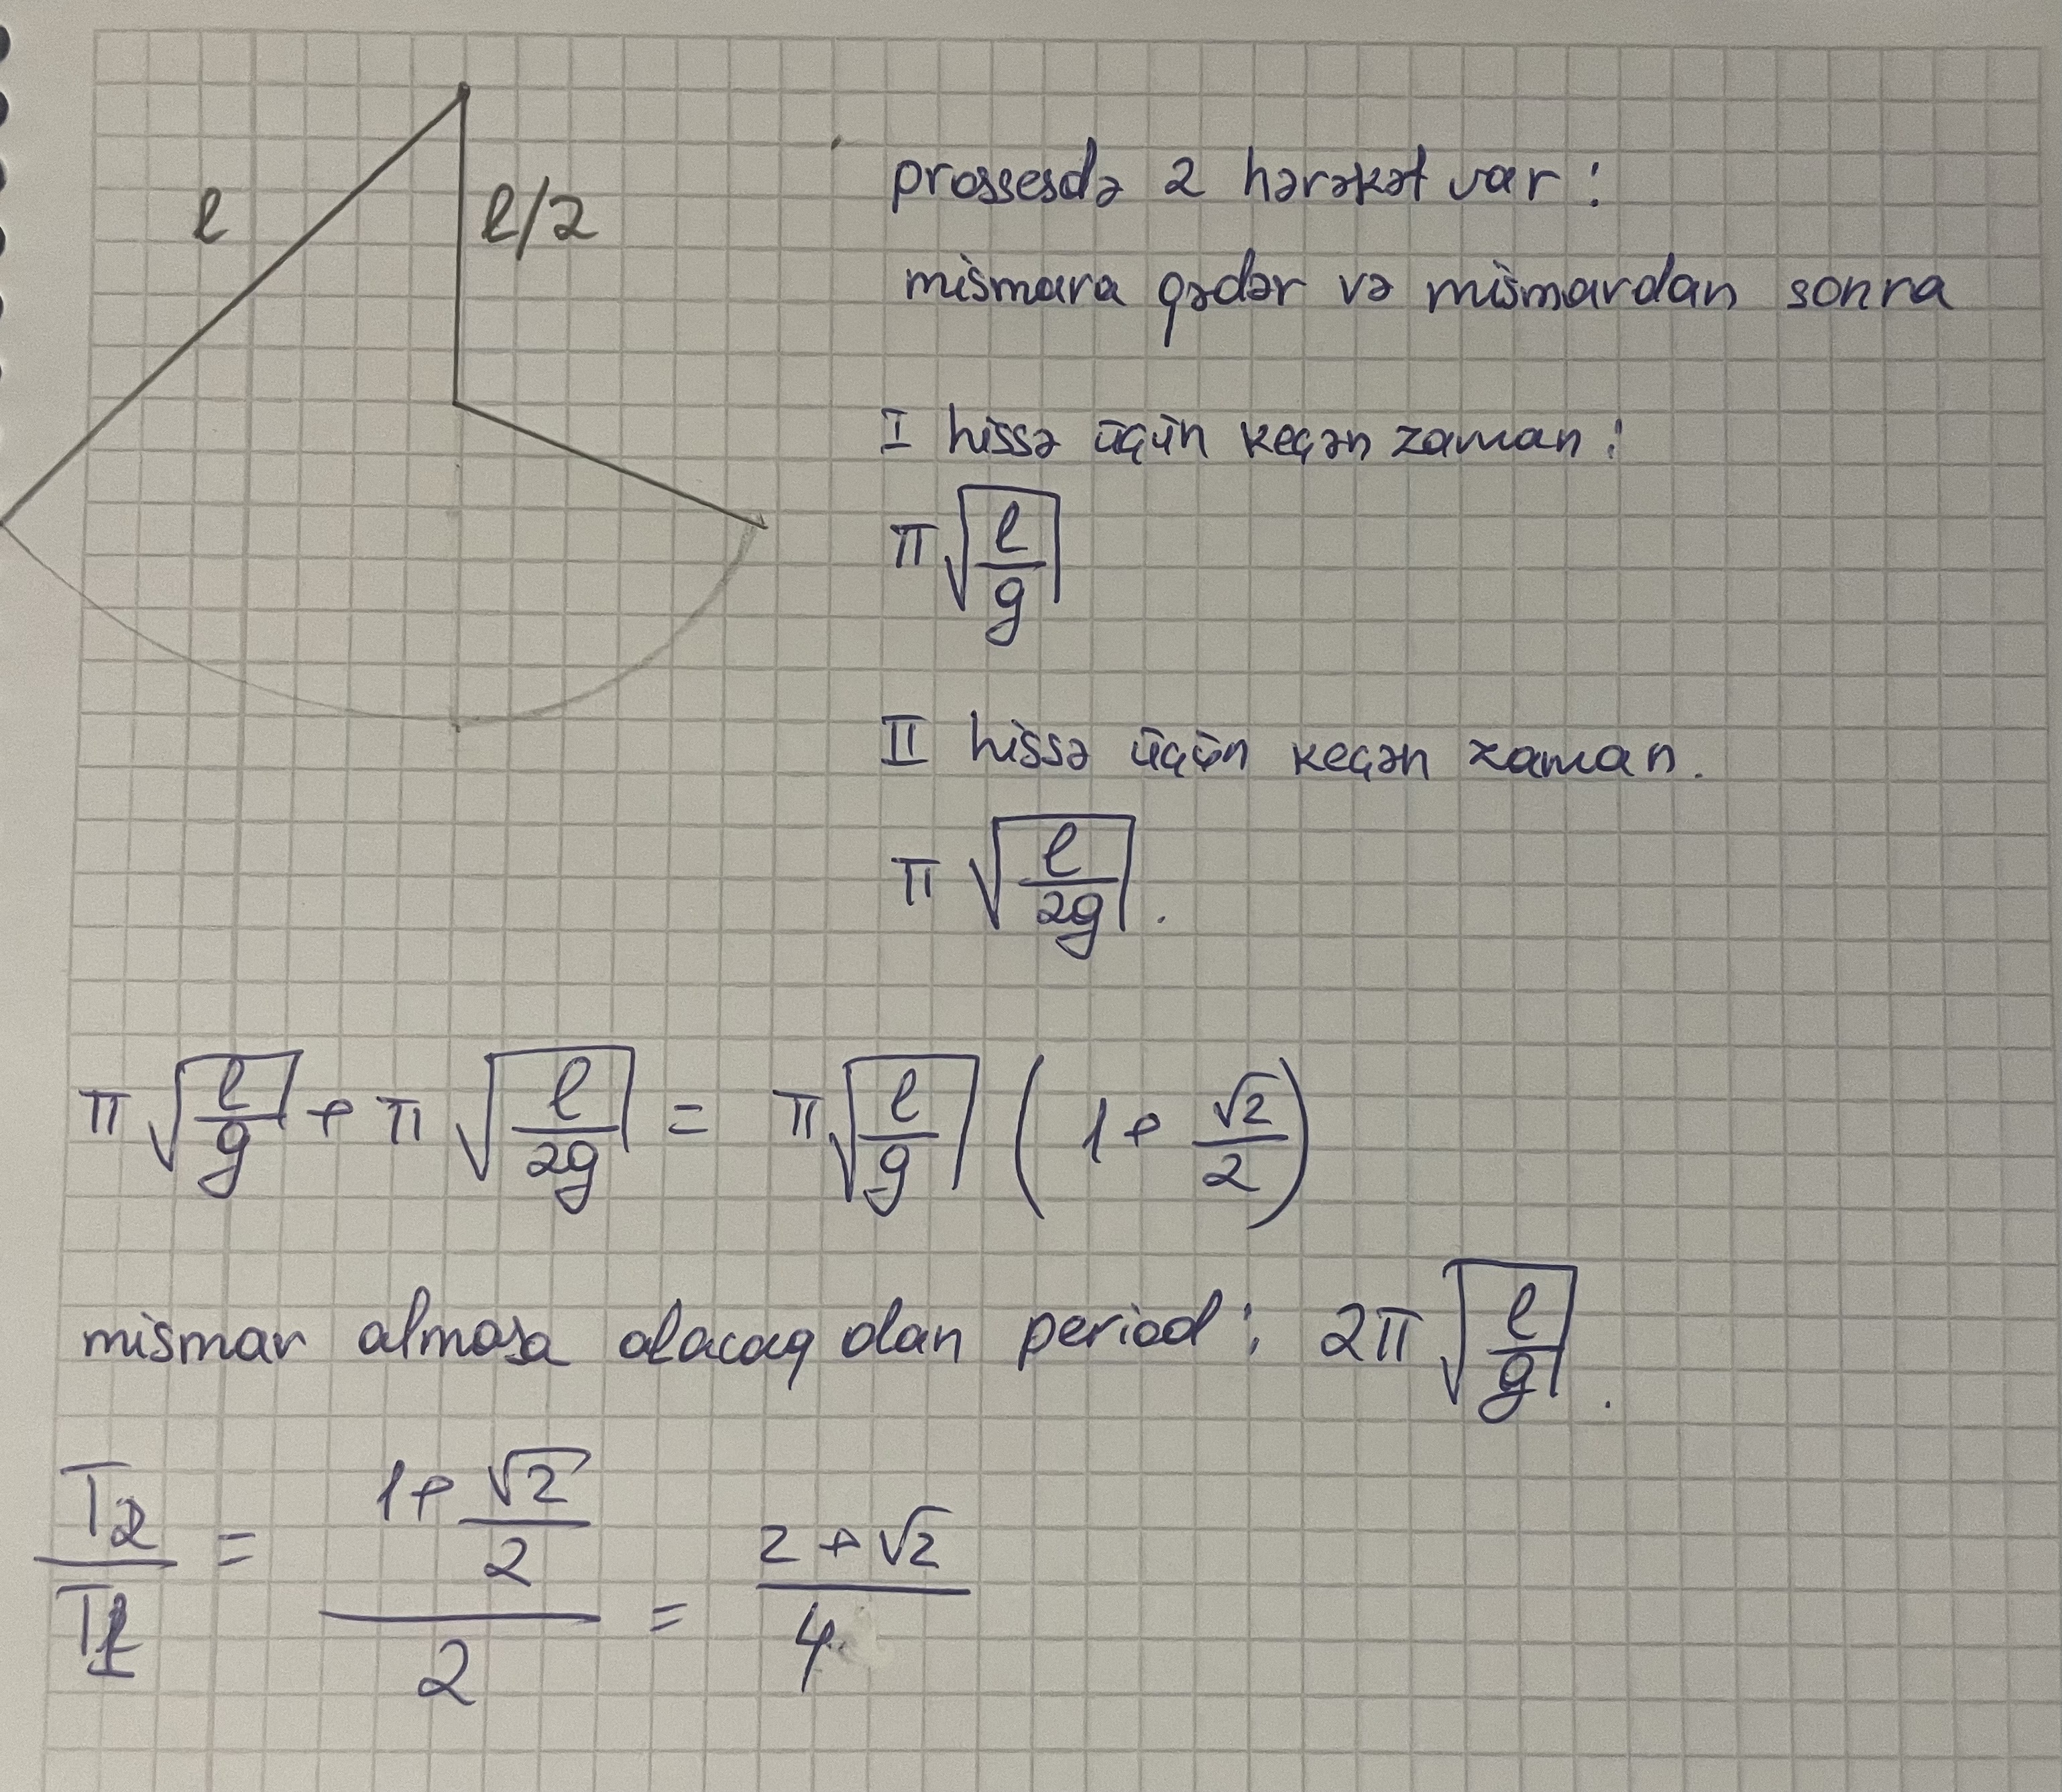 l
l/2
prossesdə 2 hərəkət var:
mismara qədər və mismardan sonra
I hissə üçün keçən zaman:
π√(l/g)
II hissə üçün keçən zaman.
π√(l/2g).
π√(l/g) + π√(l/2g) = π√(l/g) (1 + √2/2)
mismar olmasa olacaq olan period: 2π√(l/g).
T2/T1 = (1 + √2/2)/2 = (2 + √2)/4